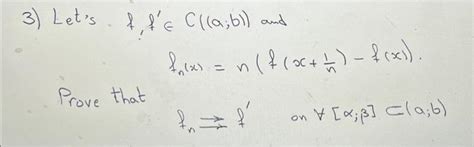 3) Let's f, f' ∈ C((a;b)) and
fₙ(x) = n (f(x+1/n) − f(x)).
Prove that
fₙ ⇉ f' on ∀ [α;β] ⊂ (a;b)